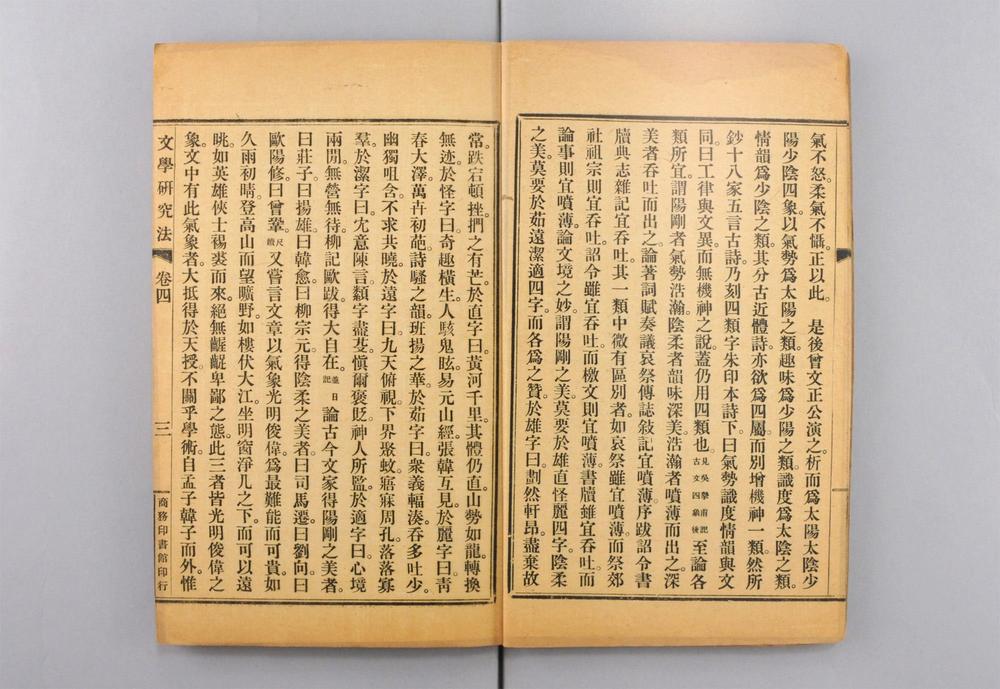 氣不怒。柔氣不懾。正以此。　是後曾文正公演之。析而爲太陽太陰少
陽少陰四象。以氣勢爲太陽之類。趣味爲少陽之類。識度爲太陰之類。
情韻爲少陰之類。其分古近體詩。亦欲爲四屬。而別增機神一類。然所
鈔十八家五言古詩。乃刻四類字朱印本詩下。曰氣勢識度情韻與文
同。曰工律與文異。而無機神之說。蓋仍用四類也。見吳摯甫記古文四象後至論各
類所宜。謂陽剛者氣勢浩瀚。陰柔者韻味深美。浩瀚者噴薄而出之。深
美者吞吐而出之。論著詞賦奏議哀祭傳誌敍記宜噴薄。序跋詔令書
牘典志雜記宜吞吐。其一類中微有區別者。如哀祭雖宜噴薄。而祭郊
社祖宗則宜吞吐。詔令雖宜吞吐。而檄文則宜噴薄。書牘雖宜吞吐。而
論事則宜噴薄。論文境之妙。謂陽剛之美。莫要於雄直怪麗四字。陰柔
之美。莫要於茹遠潔適四字。而各爲之贊。於雄字曰。劃然軒昂。盡棄故
常。跌宕頓挫。捫之有芒。於直字曰。黃河千里。其體仍直。山勢如龍。轉換
無迹。於怪字曰。奇趣橫生。人駭鬼眩。易元山經。張韓互見。於麗字曰。靑
春大澤。萬卉初葩。詩騷之韻。班揚之華。於茹字曰。衆義輻湊。吞多吐少。
幽獨咀含。不求共曉。於遠字曰。九天俯視。下界聚蚊。寤寐周孔。落落寡
羣。於潔字曰。宂意陳言。纇字盡芟。愼爾褒貶。神人所監。於適字曰。心境
兩閒。無營無待。柳記歐跋。得大自在。並日記論古今文家得陽剛之美者。
曰莊子。曰揚雄。曰韓愈。曰柳宗元。得陰柔之美者。曰司馬遷。曰劉向。曰
歐陽修。曰曾鞏。尺牘又嘗言文章以氣象光明俊偉。爲最難能而可貴。如
久雨初晴。登高山而望曠野。如樓伏大江。坐明窗淨几之下。而可以遠
眺。如英雄俠士。裼裘而來。絕無齷齪卑鄙之態。此三者皆光明俊偉之
象。文中有此氣象者。大抵得於天授。不關乎學術。自孟子韓子而外。惟
文學研究法
卷四
三
商務印書館印行